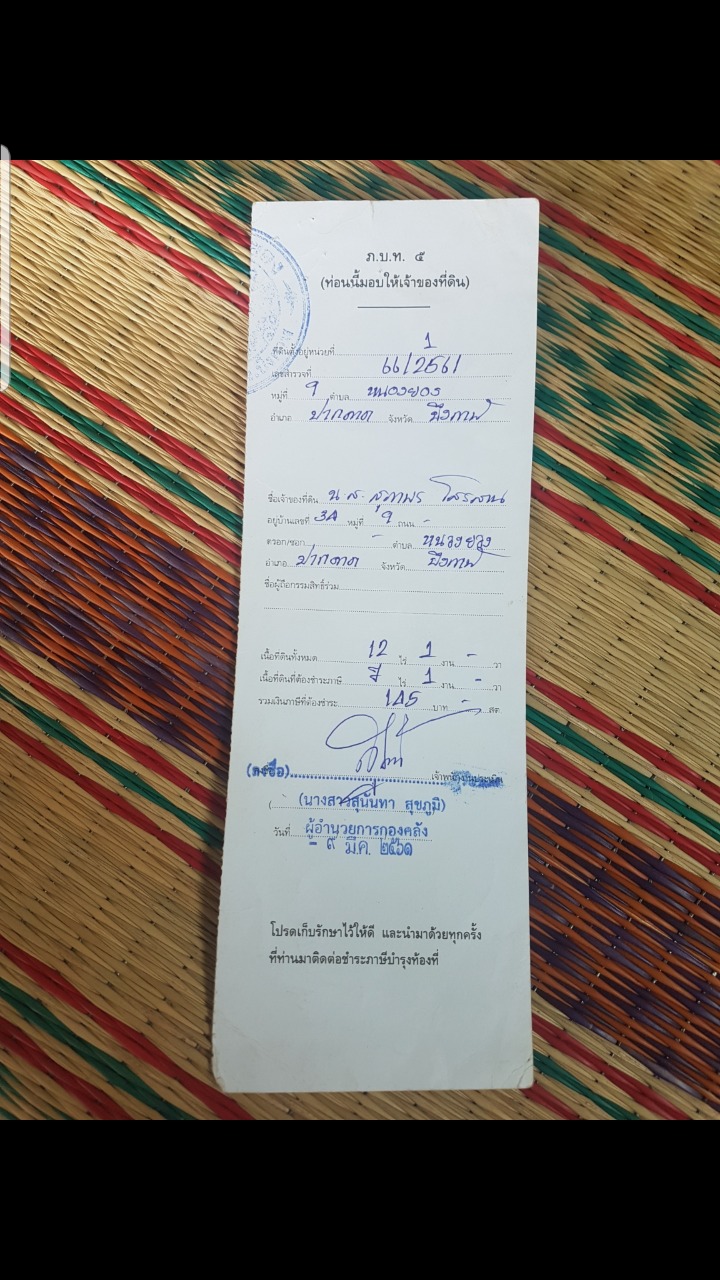 ภ.บ.ท. ๕
(ท่อนนี้มอบให้เจ้าของที่ดิน)
ที่ดินตั้งอยู่หน่วยที่ 1
เลขสำรวจที่ 66/2561
หมู่ที่ 9 ตำบล หนองยอง
อำเภอ ปากคาด จังหวัด บึงกาฬ
ชื่อเจ้าของที่ดิน น.ส. สุภาพร
อยู่บ้านเลขที่ 34 หมู่ที่ 9 ถนน -
ตรอก/ซอก - ตำบล หนองยอง
อำเภอ ปากคาด จังหวัด บึงกาฬ
ชื่อผู้ถือกรรมสิทธิ์ร่วม
เนื้อที่ดินทั้งหมด 12 ไร่ 1 งาน - วา
เนื้อที่ดินที่ต้องชำระภาษี ไร่ 1 งาน - วา
รวมเงินภาษีที่ต้องชำระ 145 บาท - สต.
(ลงชื่อ) เจ้าพนักงานประเมิน
(นางสาวสุนันทา สุขภูมิ)
วันที่ ผู้อำนวยการกองคลัง
- ๙ มี.ค. ๒๕๖๑
โปรดเก็บรักษาไว้ให้ดี และนำมาด้วยทุกครั้ง
ที่ท่านมาติดต่อชำระภาษีบำรุงท้องที่